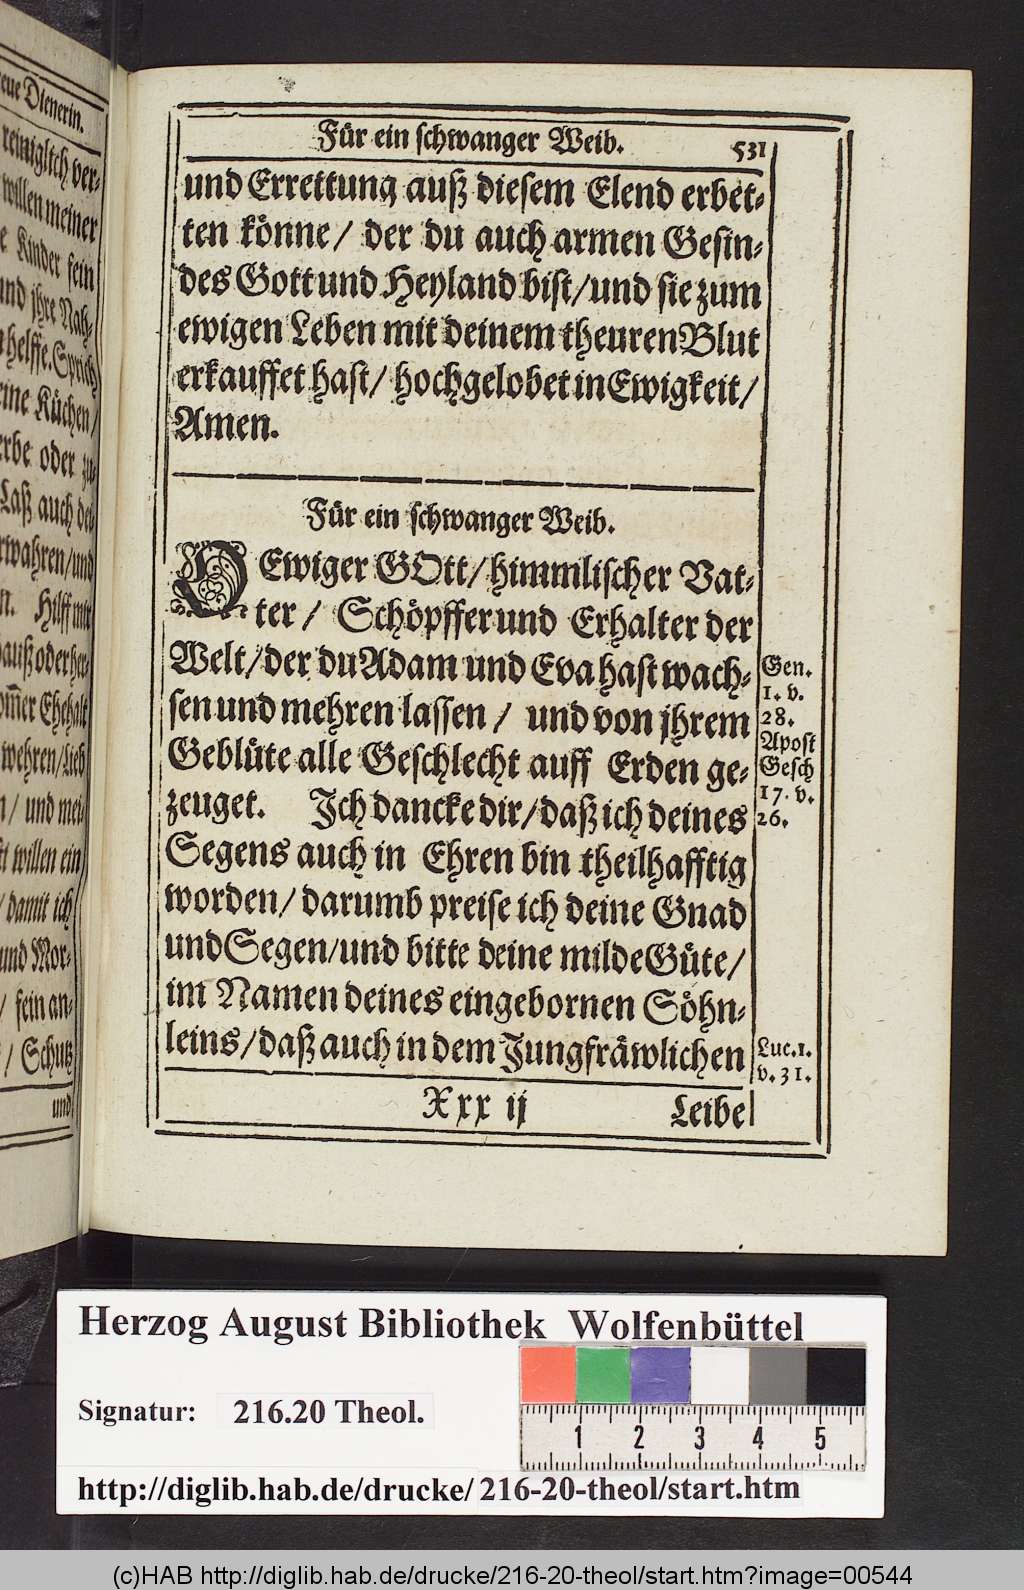 eue Dienerin.
reiniglich ver-
willen meiner
e Kinder fein
und jhre Nah-
helffe. Sprich
eine Küchen /
erbe oder zu-
Laß auch dei-
rwahren / und
n. Hilff mir
auß oder her-
om̃er Ehehalt
wehren / lieb
n / und mei-
st willen ein
/ damit ich
und Mor-
/ fein an-
/ Schutz
und
Für ein schwanger Weib. 531
und Errettung auß diesem Elend erbet-
ten könne / der du auch armen Gesin-
des Gott und Heyland bist / und sie zum
ewigen Leben mit deinem theuren Blut
erkauffet hast / hochgelobet in Ewigkeit /
Amen.
Für ein schwanger Weib.
O Ewiger GOtt / himmlischer Vat-
ter / Schöpffer und Erhalter der
Welt / der du Adam und Eva hast wach-
sen und mehren lassen / und von jhrem
Geblüte alle Geschlecht auff Erden ge-
zeuget. Ich dancke dir / daß ich deines
Segens auch in Ehren bin theilhafftig
worden / darumb preise ich deine Gnad
und Segen / und bitte deine milde Güte /
im Namen deines eingebornen Söhn-
leins / daß auch in dem Jungfräwlichen
Gen.
1. v.
28.
Apost
Gesch
17. v.
26.
Luc. 1.
v. 31.
Xxx ij Leibe
Herzog August Bibliothek Wolfenbüttel
Signatur: 216.20 Theol.
1 2 3 4 5
http://diglib.hab.de/drucke/ 216-20-theol/start.htm
(c)HAB http://diglib.hab.de/drucke/216-20-theol/start.htm?image=00544